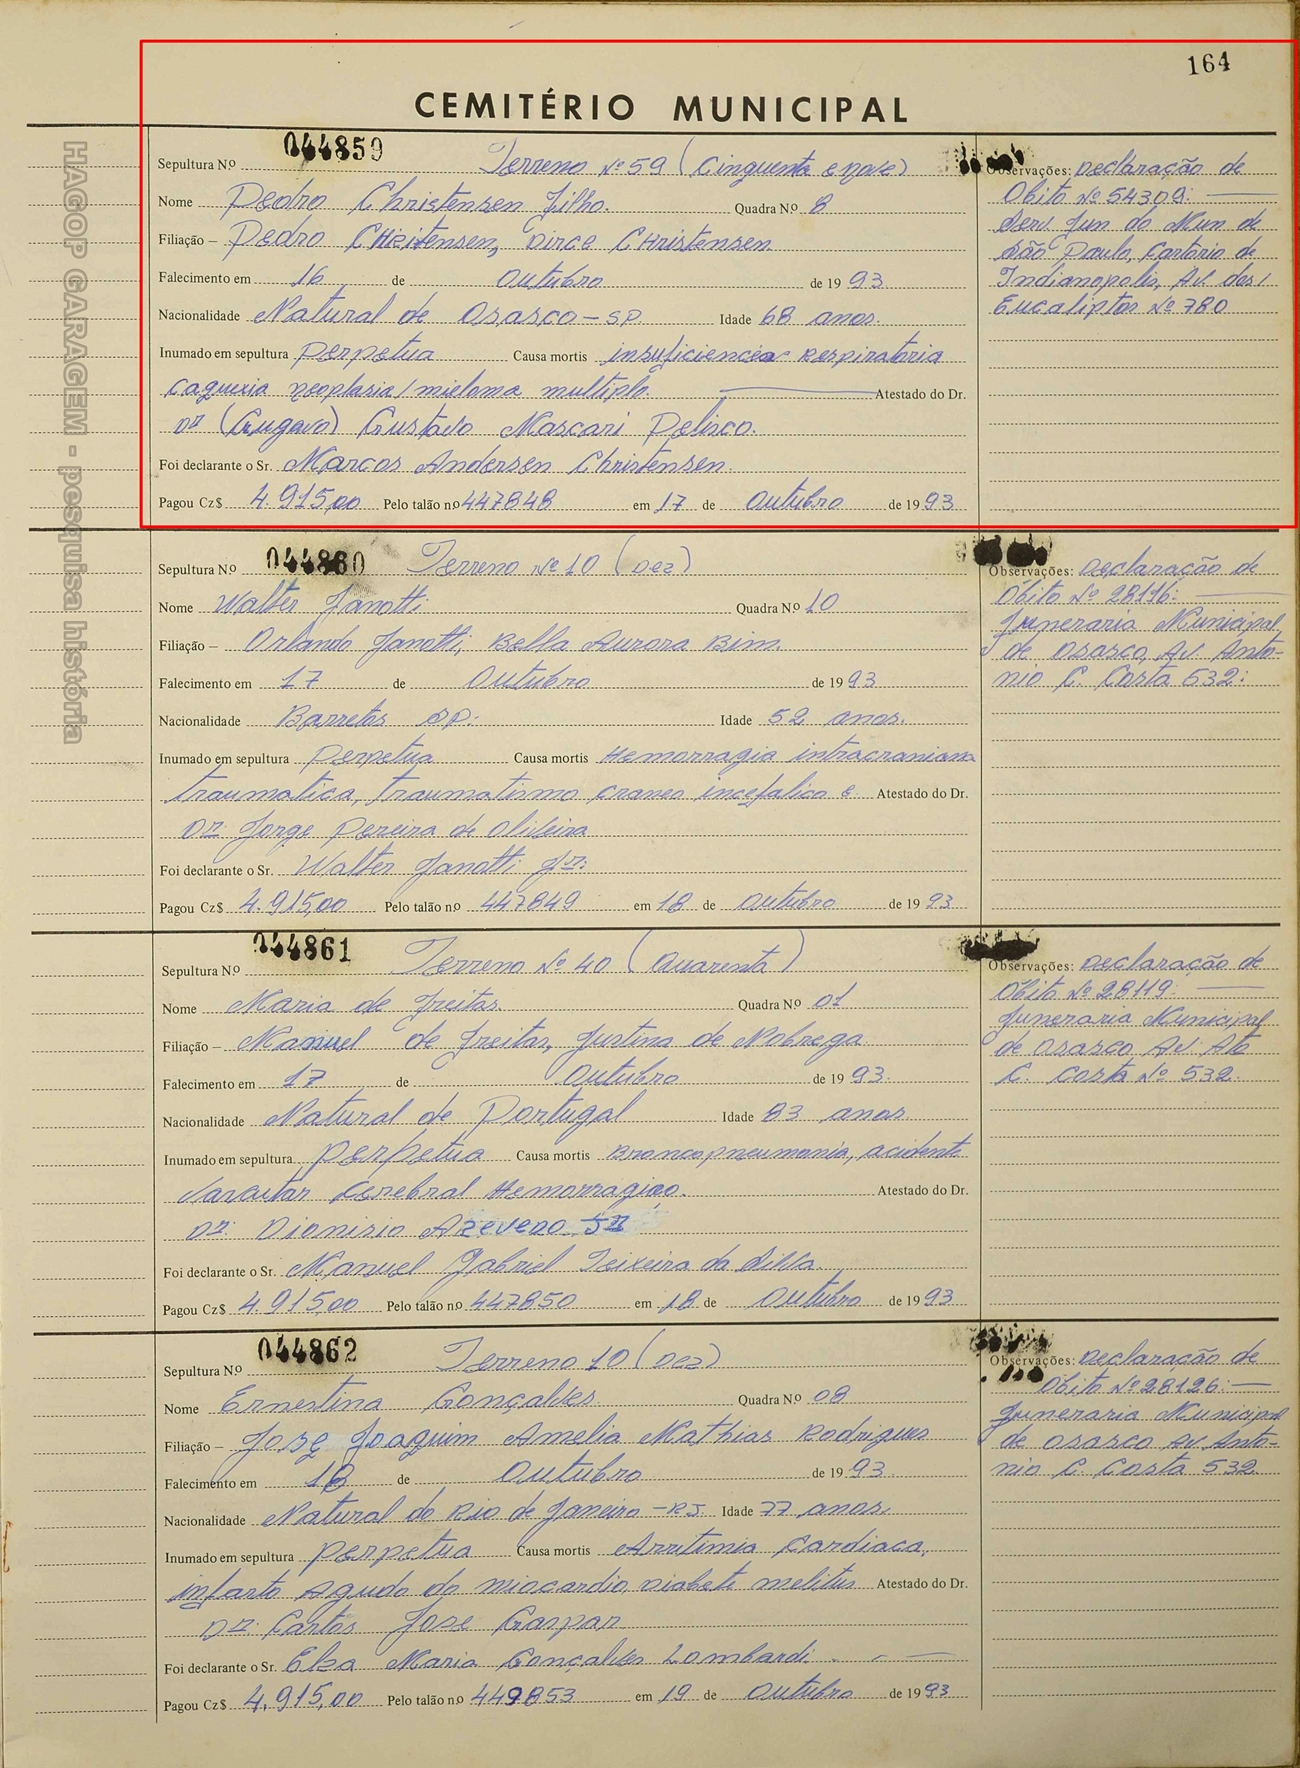 164
CEMITÉRIO MUNICIPAL
HAGOP GARAGEM - pesquisa história
Sepultura Nº 044859 Terreno Nº 59 (Cinquenta e nove)
Nome Pedro Christensen Filho. Quadra Nº 8
Filiação – Pedro Christensen, Dirce Christensen
Falecimento em 16 de Outubro de 1993
Nacionalidade Natural de Osasco - SP Idade 68 anos.
Inumado em sepultura perpetua Causa mortis insuficiencia respiratoria
caquexia neoplasia/mieloma multiplo. Atestado do Dr.
Dr (Gugavo) Gustavo Mascari Pelisco.
Foi declarante o Sr. Marcos Andersen Christensen.
Pagou Cz$ 4.915,00 Pelo talão nº 447848 em 17 de Outubro de 1993
Observações: Declaração de
Obito Nº 54309:
Serv. Fun do Mun de
São Paulo, Cartorio de
Indianopolis, Av. dos
Eucaliptos Nº 780
Sepultura Nº 044860 Terreno Nº 10 (Dez)
Nome Walter Janotti Quadra Nº 10
Filiação – Orlando Janotti, Bella Aurora Bim.
Falecimento em 17 de Outubro de 1993
Nacionalidade Barretos SP. Idade 52 anos.
Inumado em sepultura perpetua Causa mortis Hemorragia intracraniana
traumatica, traumatismo craneo incefalico e Atestado do Dr.
Dr Jorge Pereira de Oliveira
Foi declarante o Sr. Walter Janotti Jr.
Pagou Cz$ 4.915,00 Pelo talão nº 447849 em 18 de Outubro de 1993
Observações: Declaração de
Obito Nº 28116:
Funeraria Municipal
de Osasco, Av. Anto-
nio C. Costa 532:
Sepultura Nº 044861 Terreno Nº 40 (Quarenta)
Nome Maria de Freitas. Quadra Nº 01
Filiação – Manuel de Freitas, Justina de Nobrega
Falecimento em 17 de Outubro de 1993.
Nacionalidade Natural de Portugal Idade 83 anos.
Inumado em sepultura perpetua Causa mortis Broncopneumonia, acidente
Vascular Cerebral Hemorragico. Atestado do Dr.
Dr. Dionisio Azevedo Jr
Foi declarante o Sr. Manuel Gabriel Teixeira da Silva
Pagou Cz$ 4.915,00 Pelo talão nº 447850 em 18 de Outubro de 1993
Observações: Declaração de
Obito Nº 28119:
Funeraria Municipal
de Osasco Av. Ato
C. Costa Nº 532.
Sepultura Nº 044862 Terreno 10 (Dez)
Nome Ernestina Gonçalves Quadra Nº 08
Filiação – José Joaquim Amelia Mathias Rodrigues
Falecimento em 18 de Outubro de 1993.
Nacionalidade Natural do Rio de Janeiro - RJ. Idade 77 anos.
Inumado em sepultura perpetua Causa mortis Arritimia Cardiaca,
infarto Agudo do miocardio, Diabete melitus Atestado do Dr.
Dr: Carlos Jose Gaspar
Foi declarante o Sr. Elza Maria Gonçalves Lombardi
Pagou Cz$ 4.915,00 Pelo talão nº 449853 em 19 de Outubro de 1993
Observações: Declaração de
Obito Nº 28126:
Funeraria Municipal
de Osasco Av Anto-
nio C. Costa 532